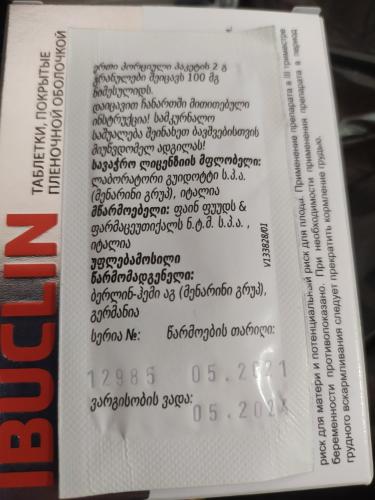 IBUCLIN
ТАБЛЕТКИ, ПОКРЫТЫЕ
ПЛЕНОЧНОЙ ОБОЛОЧКОЙ
ერთი პორციული პაკეტის 2 გ
გრანულები შეიცავს 100 მგ
ნიმესულიდს.
დაიცავით ჩანართში მითითებული
ინსტრუქცია! სამკურნალო
საშუალება შეინახეთ ბავშვებისთვის
მიუწვდომელ ადგილას!
სავაჭრო ლიცენზიის მფლობელი:
ლაბორატორი გუიდოტტი ს.პ.ა.
(მენარინი გრუპ), იტალია
მწარმოებელი: ფაინ ფუუდს &
ფარმაცეუთიქალს ნ.ტ.მ. ს.პ.ა. ,
იტალია
უფლებამოსილი
წარმომადგენელი:
ბერლინ-ჰემი აგ (მენარინი გრუპ),
გერმანია
სერია №: წარმოების თარიღი:
12985 05.2021
ვარგისობის ვადა:
05.2024
V133828/01
риск для матери и потенциальный риск для плода. Применение препарата в III триместре
беременности противопоказано. При необходимости применения препарата в период
грудного вскармливания следует прекратить кормление грудью.